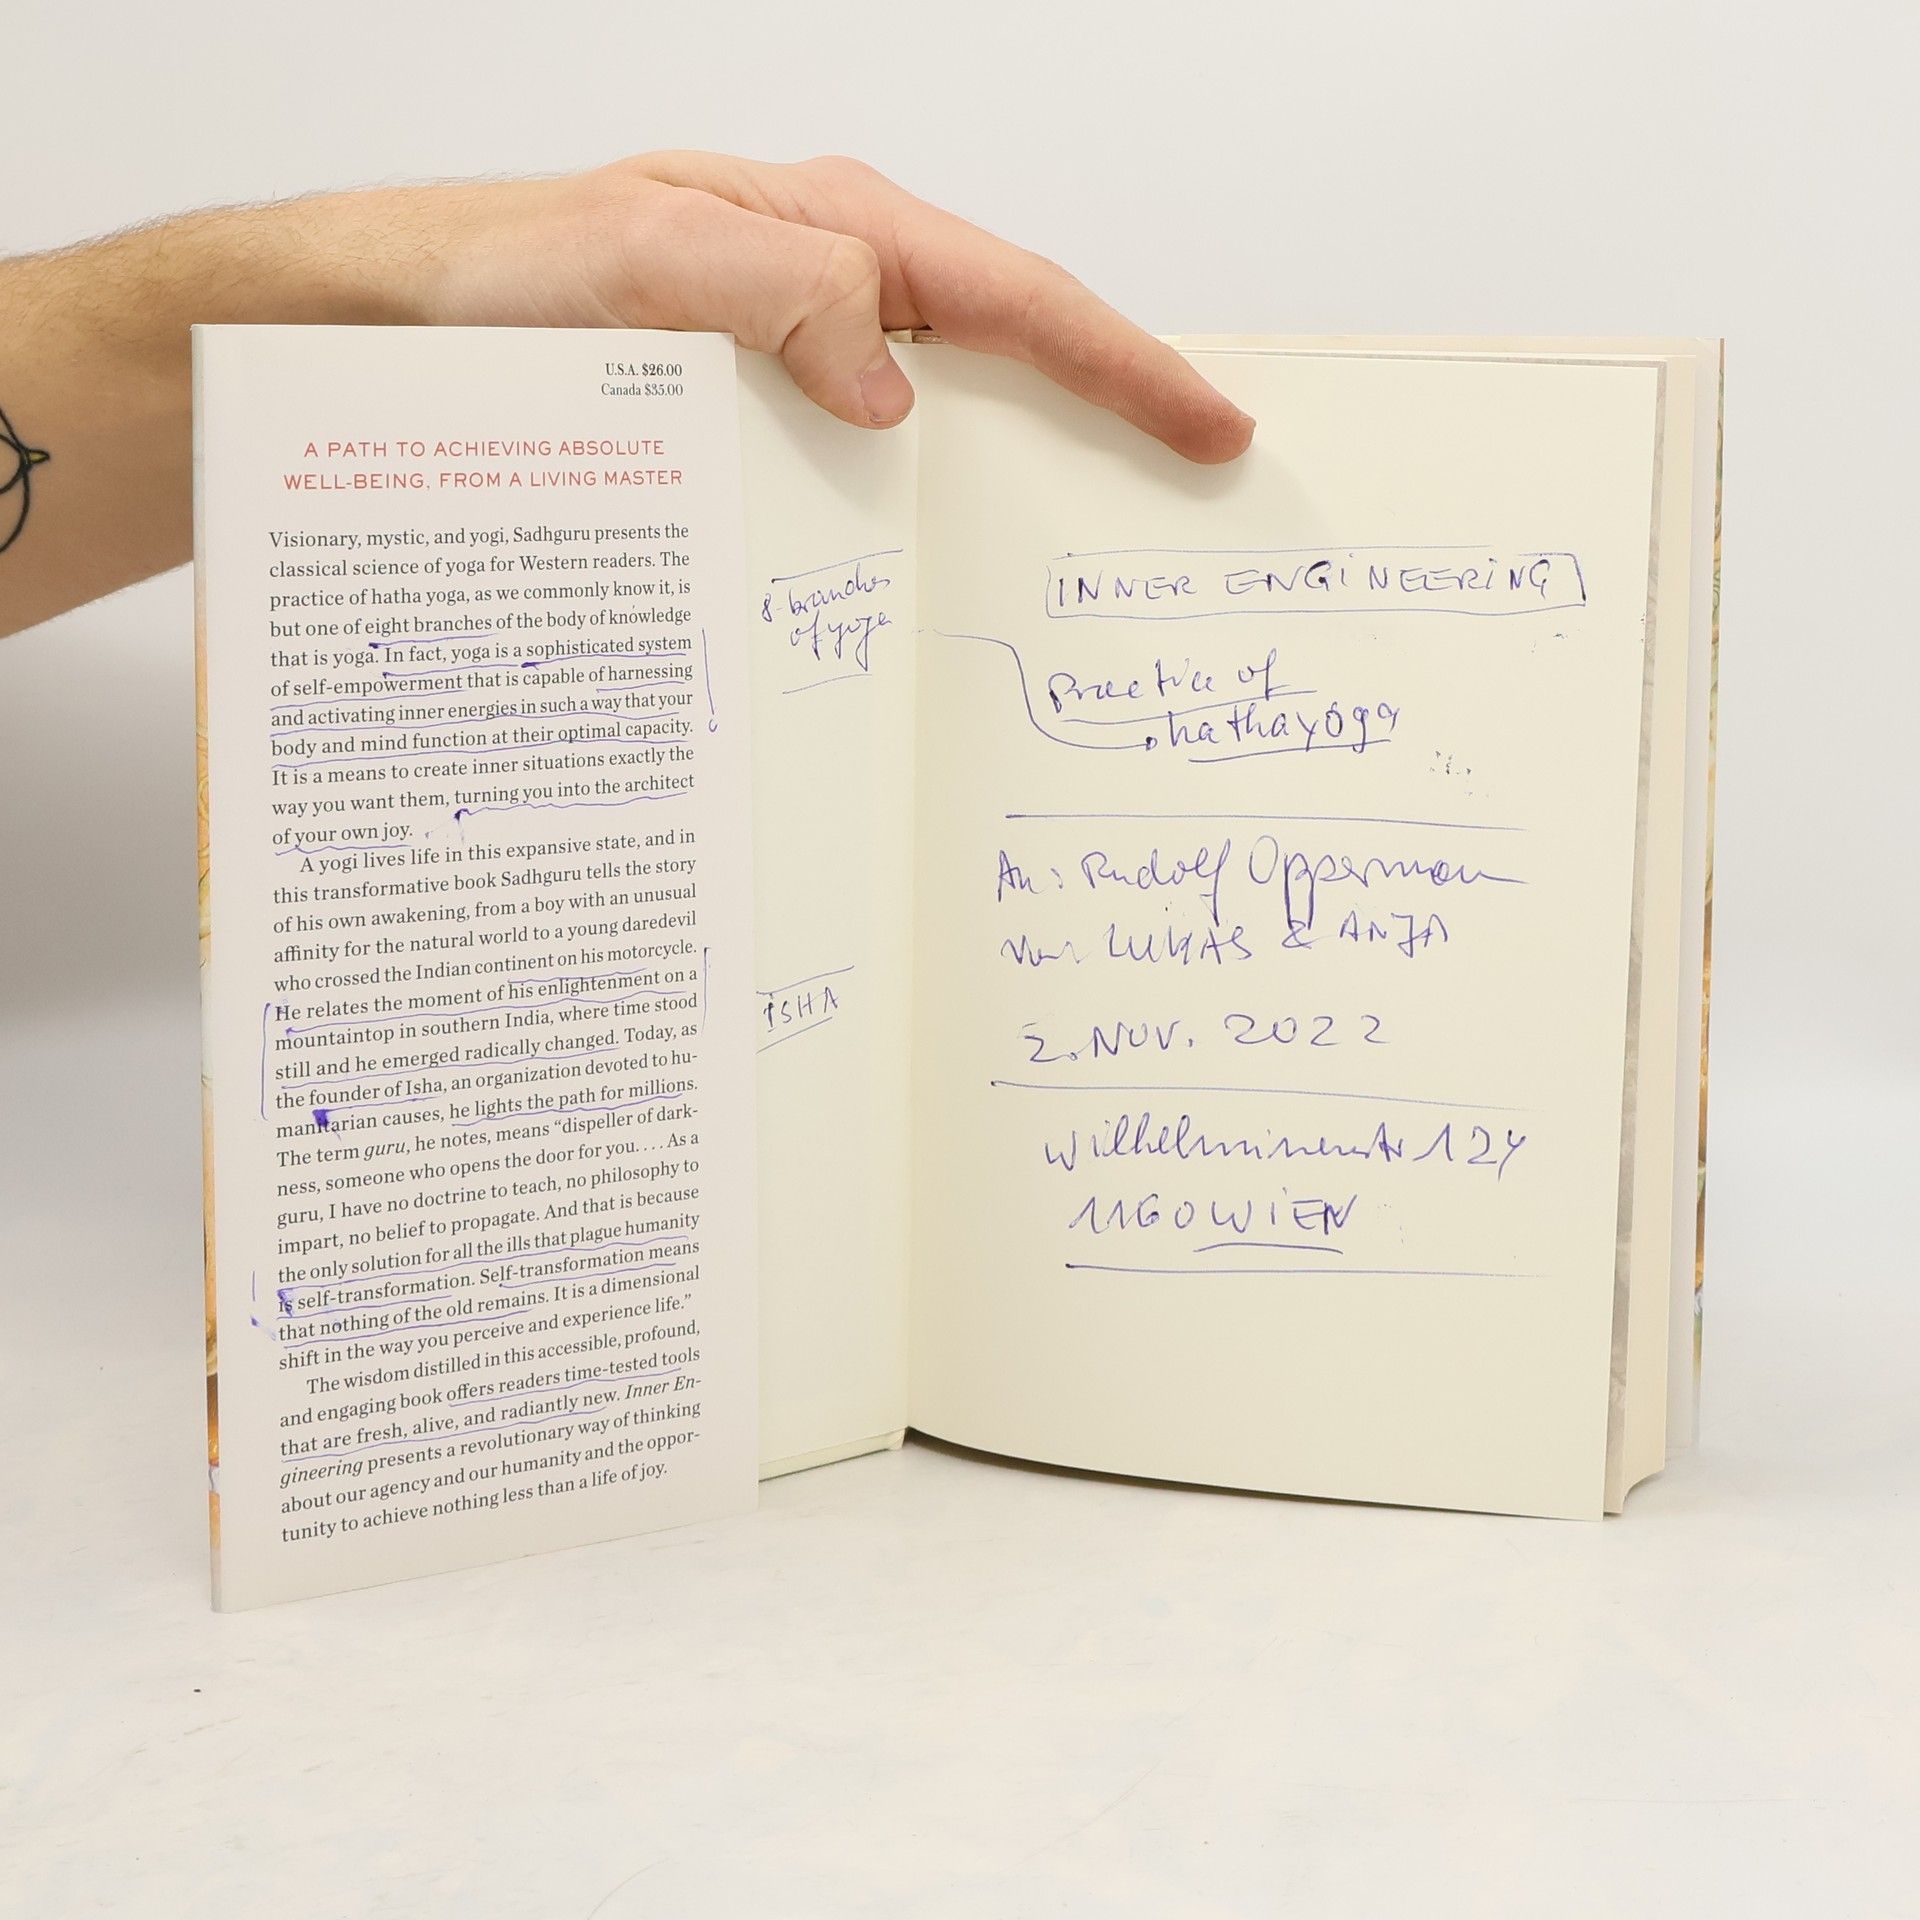 U.S.A. $26.00
Canada $35.00
A PATH TO ACHIEVING ABSOLUTE
WELL-BEING, FROM A LIVING MASTER
Visionary, mystic, and yogi, Sadhguru presents the
classical science of yoga for Western readers. The
practice of hatha yoga, as we commonly know it, is
but one of eight branches of the body of knowledge
that is yoga. In fact, yoga is a sophisticated system
of self-empowerment that is capable of harnessing
and activating inner energies in such a way that your
body and mind function at their optimal capacity.
It is a means to create inner situations exactly the
way you want them, turning you into the architect
of your own joy.
A yogi lives life in this expansive state, and in
this transformative book Sadhguru tells the story
of his own awakening, from a boy with an unusual
affinity for the natural world to a young daredevil
who crossed the Indian continent on his motorcycle.
He relates the moment of his enlightenment on a
mountaintop in southern India, where time stood
still and he emerged radically changed. Today, as
the founder of Isha, an organization devoted to hu-
manitarian causes, he lights the path for millions.
The term guru, he notes, means “dispeller of dark-
ness, someone who opens the door for you. . . . As a
guru, I have no doctrine to teach, no philosophy to
impart, no belief to propagate. And that is because
the only solution for all the ills that plague humanity
is self-transformation. Self-transformation means
that nothing of the old remains. It is a dimensional
shift in the way you perceive and experience life.”
The wisdom distilled in this accessible, profound,
and engaging book offers readers time-tested tools
that are fresh, alive, and radiantly new. Inner En-
gineering presents a revolutionary way of thinking
about our agency and our humanity and the oppor-
tunity to achieve nothing less than a life of joy.
8-branches
of yoga
ISHA
INNER ENGINEERING
Practice of
hathayoga
An: Rudolf Opperman
LUKAS & ANJA
2. NOV. 2022
Wilhelminenstr 124
1160 WIEN